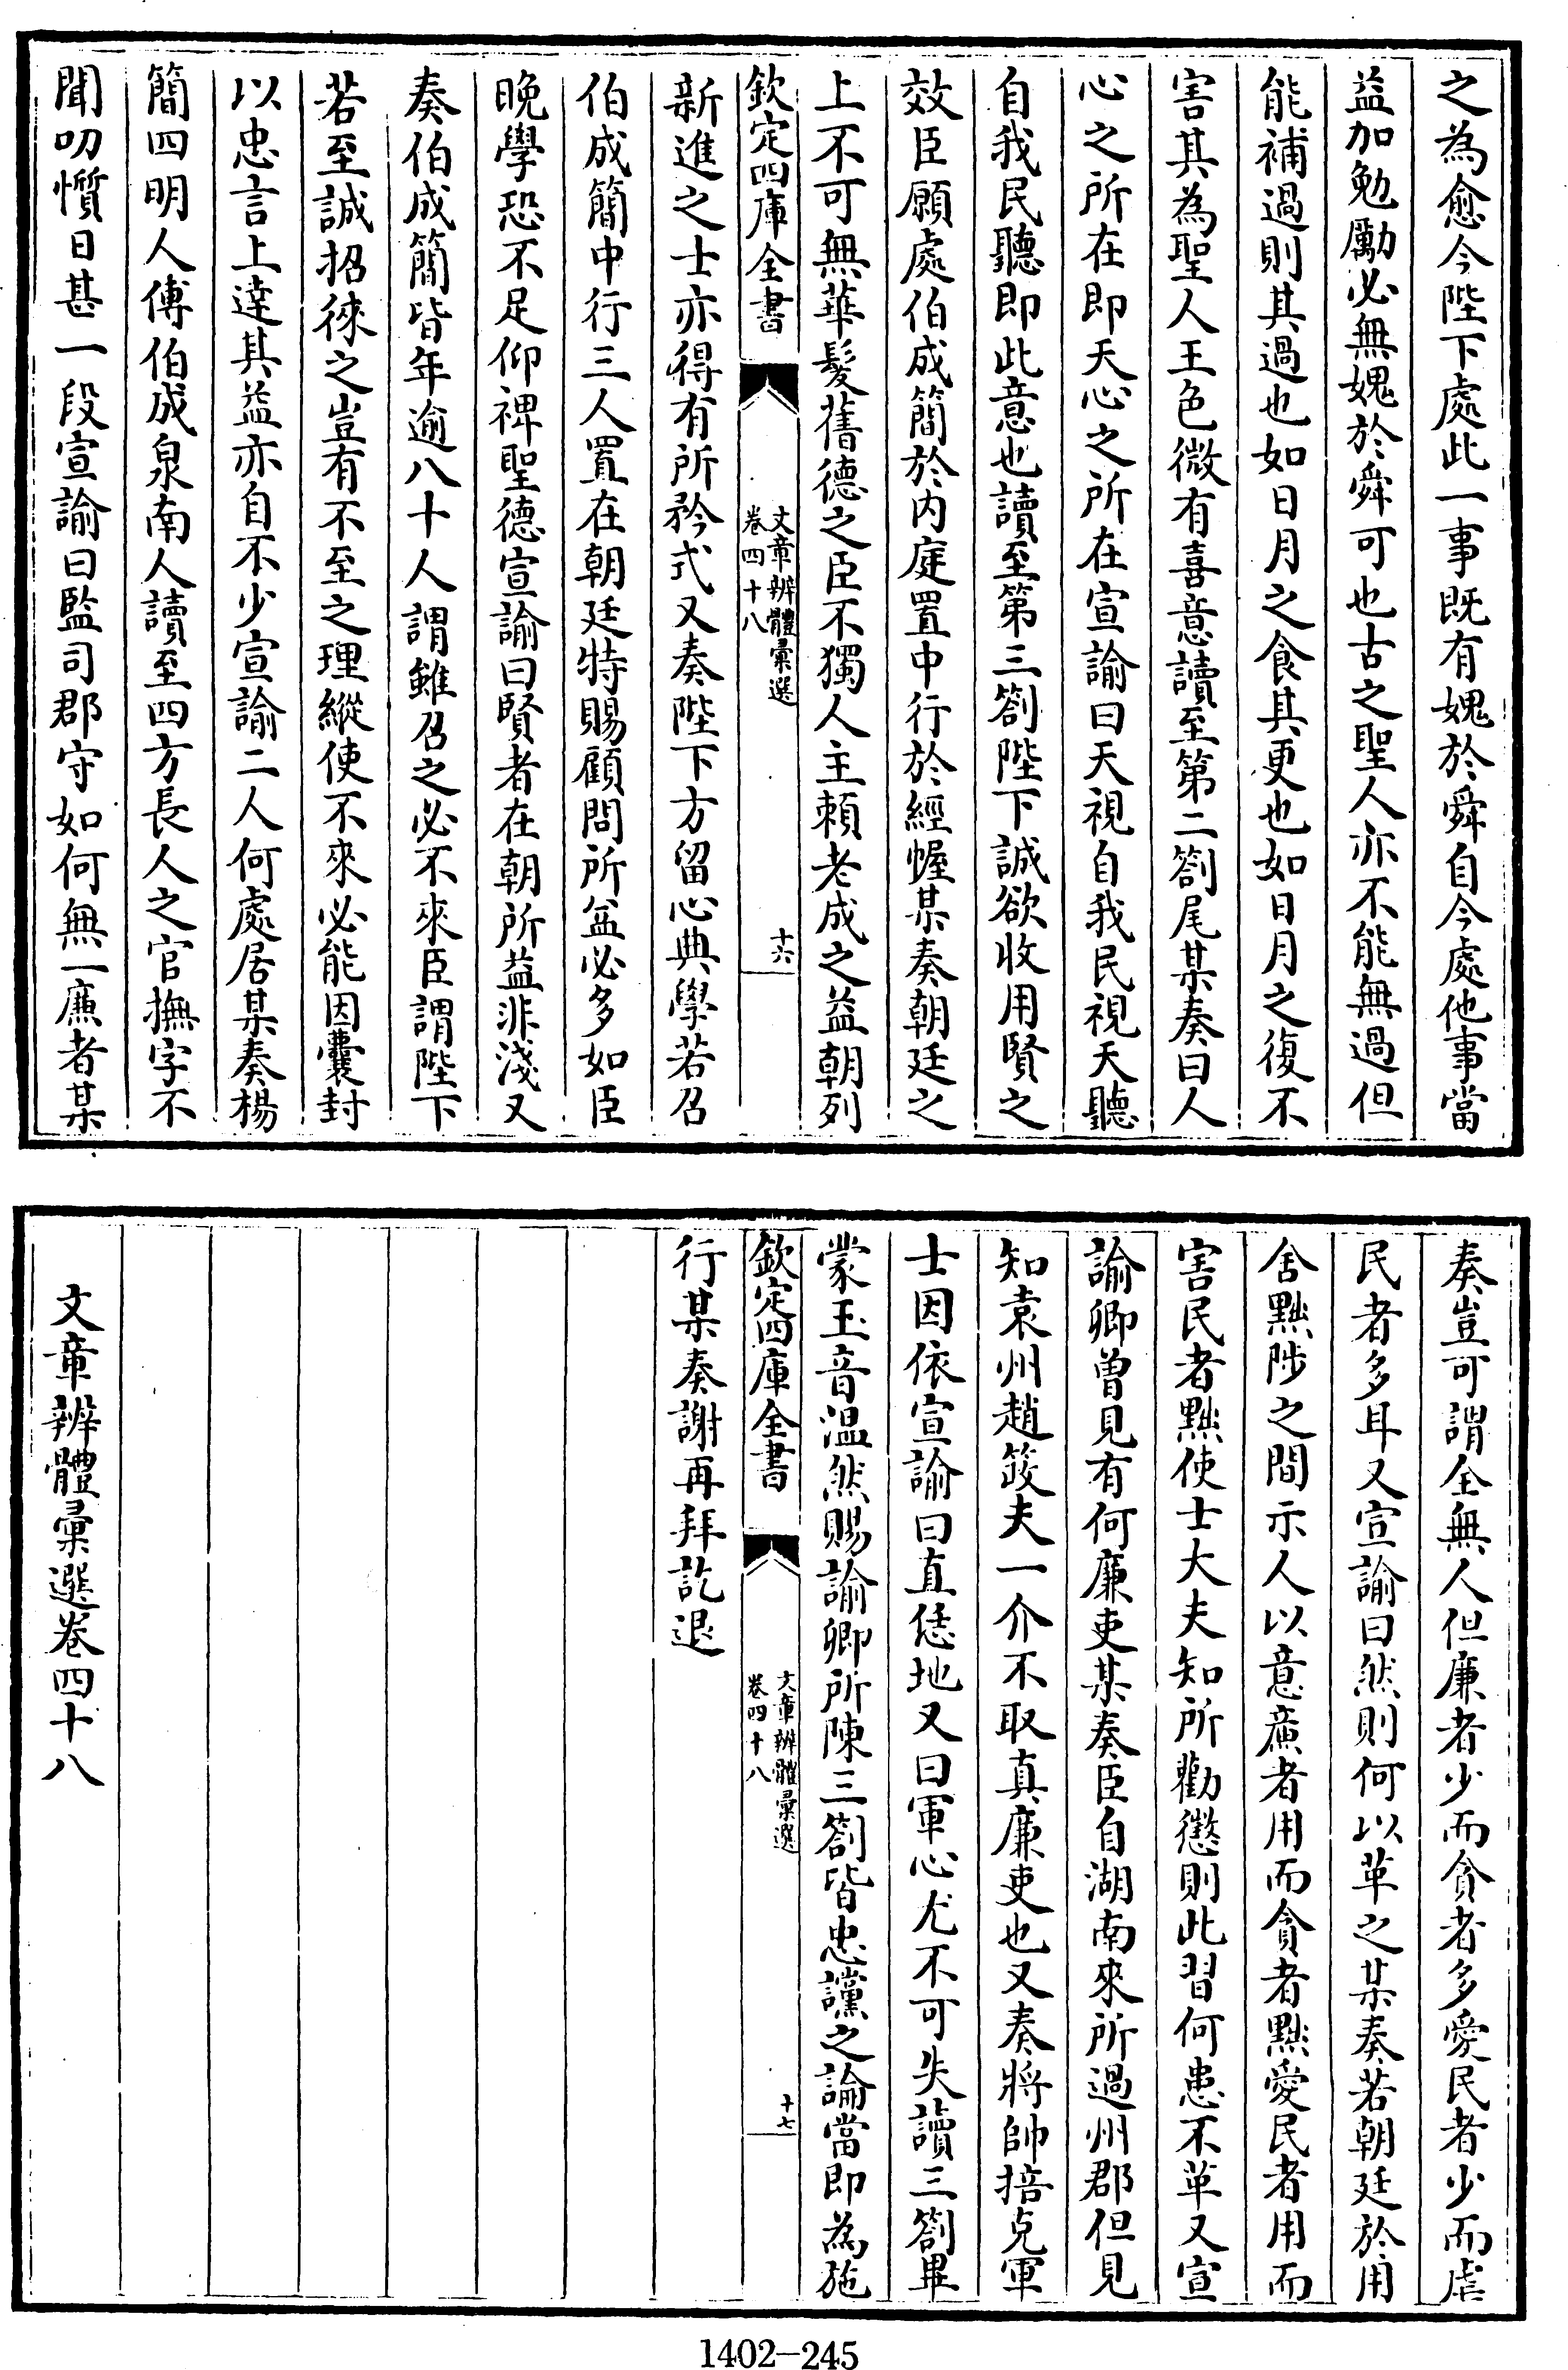 之為愈今陛下處此一事既有媿於舜自今處他事當
益加勉勵必無媿於舜可也古之聖人亦不能無過但
能補過則其過也如日月之食其更也如日月之復不
害其為聖人王色微有喜意讀至第二劄尾某奏曰人
心之所在即天心之所在宣諭曰天視自我民視天聽
自我民聽即此意也讀至第三劄陛下誠欲收用賢之
效臣願處伯成簡於内庭置中行於經幄某奏朝廷之
上不可無華髮舊德之臣不獨人主賴老成之益朝列
欽定四庫全書
文章辨體彙選
卷四十八
十六
新進之士亦得有所矜式又奏陛下方留心典學若召
伯成簡中行三人置在朝廷特賜顧問所益必多如臣
晚學恐不足仰裨聖德宣諭曰賢者在朝所益非淺又
奏伯成簡皆年逾八十人謂雖召之必不來臣謂陛下
若至誠招徠之豈有不至之理縱使不來必能因囊封
以忠言上達其益亦自不少宣諭二人何處居某奏楊
簡四明人傅伯成泉南人讀至四方長人之官撫字不
聞叨懫日甚一段宣諭曰監司郡守如何無一廉者某
奏豈可謂全無人但廉者少而貪者多愛民者少而虐
民者多耳又宣諭曰然則何以革之某奏若朝廷於用
舍黜陟之間示人以意廉者用而貪者黜愛民者用而
害民者黜使士大夫知所勸懲則此習何患不革又宣
諭卿曾見有何廉吏某奏臣自湖南來所過州郡但見
知袁州趙䇓夫一介不取真廉吏也又奏將帥掊克軍
士因依宣諭曰直恁地又曰軍心尤不可失讀三劄畢
蒙玉音溫然賜諭卿所陳三劄皆忠讜之論當即為施
欽定四庫全書
文章辨體彙選
卷四十八
十七
行某奏謝再拜訖退
文章辨體彙選卷四十八
1402-245